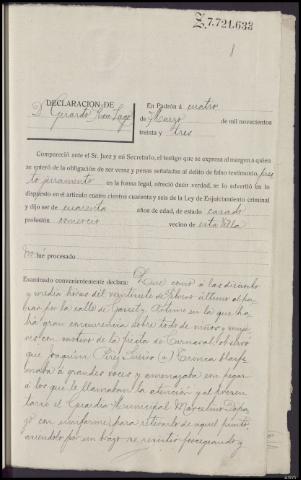 Z.7.721.633
1
DECLARACIÓN DE
D. Gerardo Rivas Lago
En Padrón á cuatro
de Marzo de mil novecientos
treinta y tres
Compareció ante el Sr. Juez y mi Secretario, el testigo que se expresa al margen a quien
se enteró de la obligación de ser veraz y penas señaladas al delito de falso testimonio, pres
to juramento en la forma legal, ofreció decir verdad, se le advirtió en lo
dispuesto en el artículo cuatro cientos cuarenta y seis de la Ley de Enjuiciamiento criminal
y dijo ser de cuarenta años de edad, de estado casado
profesión comercio vecino de esta Villa
no ha sido procesado
Examinado convenientemente declara: Que como a las diez
y media horas del veintisiete de Febrero último al pa
sar por la calle de Castelar en la que ha
bía gran concurrencia sobre todo de niños y muje
res con motivo de la fiesta de Carnaval, observó
que Joaquín Pérez (a) blasfe
maba a grandes voces y amenazaba en pegar
a los que le llamaban la atención y al presen
tarse el Guardia Municipal Marcelino
con uniforme para retirarlo de aquel punto
por un brazo se resistió persiguiendo y